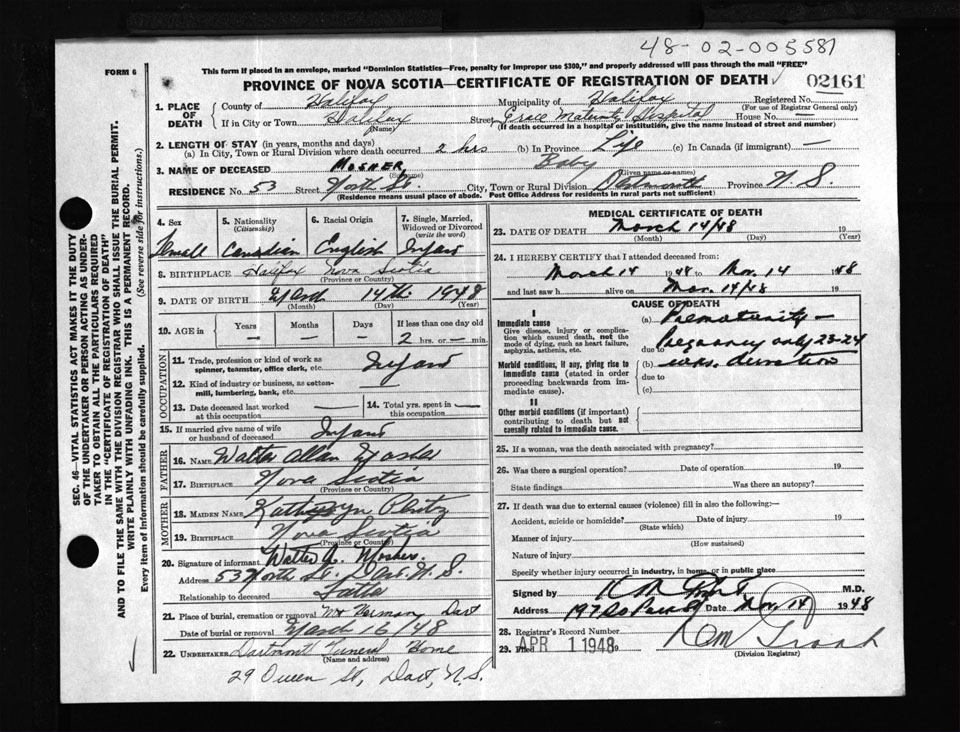 48-02-005581
FORM 6
This form if placed in an envelope, marked "Dominion Statistics—Free, penalty for improper use $300," and properly addressed will pass through the mail "FREE"
PROVINCE OF NOVA SCOTIA—CERTIFICATE OF REGISTRATION OF DEATH 02161
1. PLACE OF DEATH County of Halifax Municipality of Halifax Registered No.
(For use of Registrar General only)
If in City or Town Halifax Street Grace Maternity Hospital House No. —
(Name) (If death occurred in a hospital or institution, give the name instead of street and number)
2. LENGTH OF STAY (in years, months and days)
(a) In City, Town or Rural Division where death occurred 2 hrs (b) In Province Life (c) In Canada (if immigrant) —
3. NAME OF DECEASED MOSHER Baby
(Surname) (Given name or names)
RESIDENCE No. 53 Street North St. City, Town or Rural Division Dartmouth Province N. S.
(Residence means usual place of abode. Post Office Address for residents in rural parts not sufficient)
4. Sex
Female
5. Nationality
(Citizenship)
Canadian
6. Racial Origin
English
7. Single, Married, Widowed or Divorced
(write the word)
Infant
8. BIRTHPLACE Halifax Nova Scotia
(Province or Country)
9. DATE OF BIRTH March 14th 1948
(Month) (Day) (Year)
10. AGE in Years Months Days If less than one day old
— — — 2 hrs. or — min.
OCCUPATION
11. Trade, profession or kind of work as spinner, teamster, office clerk, etc. Infant
12. Kind of industry or business, as cotton-mill, lumbering, bank, etc. —
13. Date deceased last worked at this occupation —
14. Total yrs. spent in this occupation —
15. If married give name of wife or husband of deceased Infant
FATHER
16. NAME Walter Allan Mosher
17. BIRTHPLACE Nova Scotia
(Province or Country)
MOTHER
18. MAIDEN NAME Kathryn
19. BIRTHPLACE Nova Scotia
(Province or Country)
20. Signature of informant Walter Mosher.
Address 53 North St. Dart. N. S.
Relationship to deceased Father
21. Place of burial, cremation or removal Mt Herman Dart
Date of burial or removal March 16/48
22. UNDERTAKER Dartmouth Funeral Home
(Name and address)
29 Queen St, Dart, N.S.
MEDICAL CERTIFICATE OF DEATH
23. DATE OF DEATH March 14/48 19
(Month) (Day) (Year)
24. I HEREBY CERTIFY that I attended deceased from:
March 14 1948 to Mar. 14 1948
and last saw h alive on Mar. 14/48 19
CAUSE OF DEATH
I
Immediate cause
Give disease, injury or complication which caused death, not the mode of dying, such as heart failure, asphyxia, asthenia, etc.
(a) Prematurity —
due to Pregnancy only 23-24
Morbid conditions, if any, giving rise to immediate cause (stated in order proceeding backwards from immediate cause).
(b) wks. duration
due to
(c)
II
Other morbid conditions (if important) contributing to death but not causally related to immediate cause.
25. If a woman, was the death associated with pregnancy?
26. Was there a surgical operation? Date of operation 19
State findings Was there an autopsy?
27. If death was due to external causes (violence) fill in also the following:
Accident, suicide or homicide? Date of injury 19
(State which)
Manner of injury
(How sustained)
Nature of injury
Specify whether injury occurred in industry, in home, or in public place
Signed by M.D.
Address Date Mar. 14 1948
28. Registrar's Record Number
29. Filed APR 1 1948
(Division Registrar)
SEC. 46—VITAL STATISTICS ACT MAKES IT THE DUTY
OF THE UNDERTAKER OR PERSON ACTING AS UNDER-
TAKER TO OBTAIN ALL THE PARTICULARS REQUIRED
IN THE "CERTIFICATE OF REGISTRATION OF DEATH"
AND TO FILE THE SAME WITH THE DIVISION REGISTRAR WHO SHALL ISSUE THE BURIAL PERMIT.
WRITE PLAINLY WITH UNFADING INK. THIS IS A PERMANENT RECORD.
Every item of Information should be carefully supplied. (See reverse side for instructions.)